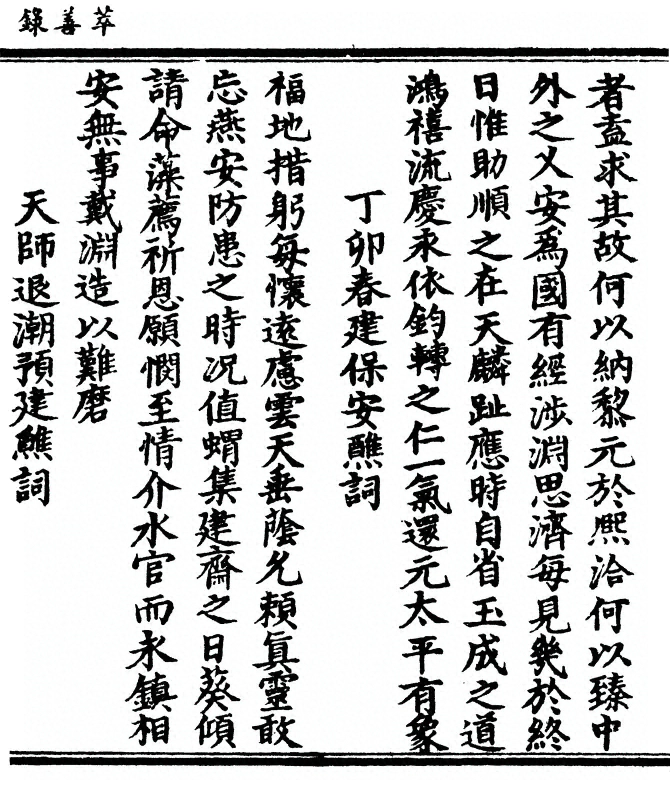 萃善錄
者盍求其故何以納黎元於熙洽何以臻中
外之乂安爲國有經涉淵思濟每見幾於終
日惟助順之在天麟趾應時自省玉成之道
鴻禧流慶永依鈞轉之仁一氣還元太平有象
丁卯春建保安醮詞
福地措躬每懷遠慮雲天垂蔭允賴眞靈敢
忘燕安防患之時况值蝟集建齋之日葵傾
請命藻薦祈恩願憫至情介水官而永鎮相
安無事戴淵造以難磨
天師退潮預建醮詞